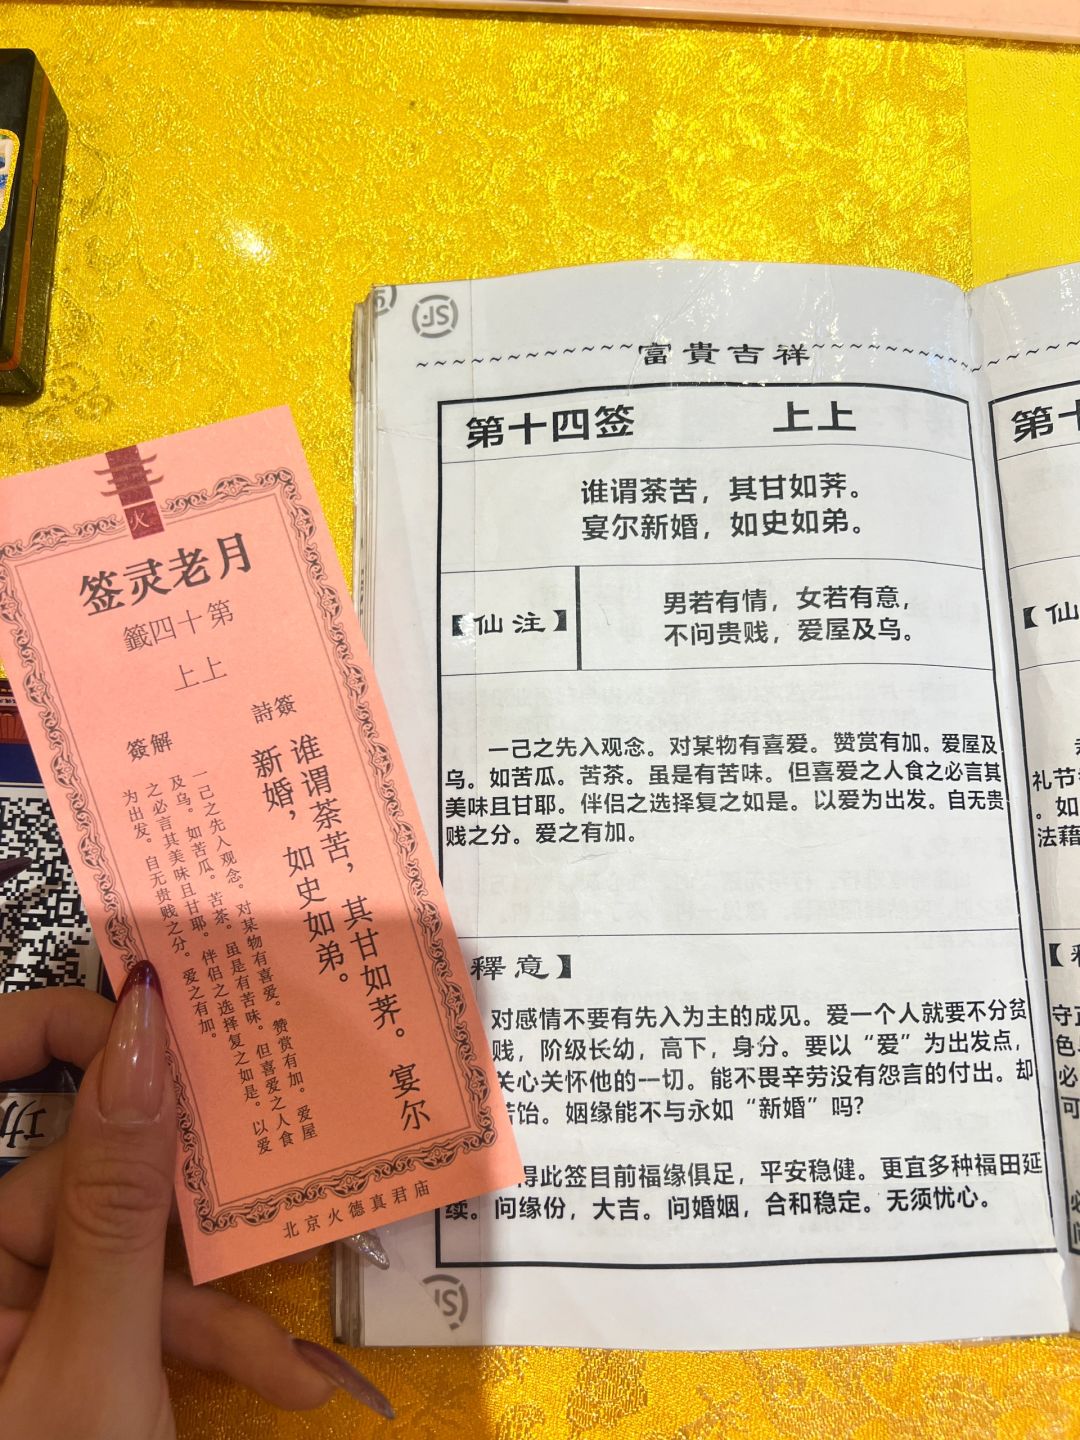 火
月老灵签
第十四籤
上上
詩簽
谁谓茶苦，其甘如荠。宴尔
新婚，如史如弟。
解簽
一己之先入观念。对某物有喜爱。赞赏有加。爱屋
及乌。如苦瓜。苦茶。虽是有苦味。但喜爱之人食
之必言其美味且甘耶。伴侣之选择复之如是。以爱
为出发。自无贵贱之分。爱之有加。
北京火德真君庙
JS
富貴吉祥
第十四签 上上
谁谓茶苦，其甘如荠。
宴尔新婚，如史如弟。
【仙注】
男若有情，女若有意，
不问贵贱，爱屋及乌。
一己之先入观念。对某物有喜爱。赞赏有加。爱屋及
乌。如苦瓜。苦茶。虽是有苦味。但喜爱之人食之必言其
美味且甘耶。伴侣之选择复之如是。以爱为出发。自无贵
贱之分。爱之有加。
釋意】
对感情不要有先入为主的成见。爱一个人就要不分贫
贱，阶级长幼，高下，身分。要以“爱”为出发点，
关心关怀他的一切。能不畏辛劳没有怨言的付出。却
苦饴。姻缘能不与永如“新婚”吗？
得此签目前福缘俱足，平安稳健。更宜多种福田延
续。问缘份，大吉。问婚姻，合和稳定。无须忧心。
JS
第十
【仙
礼节
。如
法藉
【釋
守正
色
必
可
功